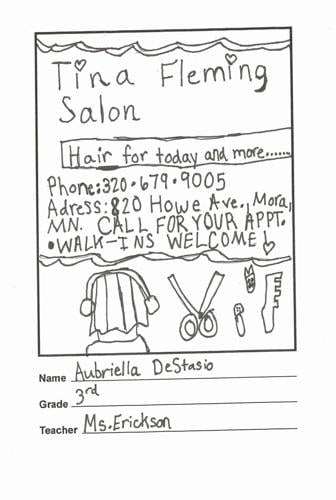 Tina Fleming
Salon
Hair for today and more......
Phone:320•679•9005
Adress:820 Howe Ave., Mora,
MN. CALL FOR YOUR APPT.
•WALK-INS WELCOME!
Name Aubriella DeStasio
Grade 3rd
Teacher Ms.Erickson